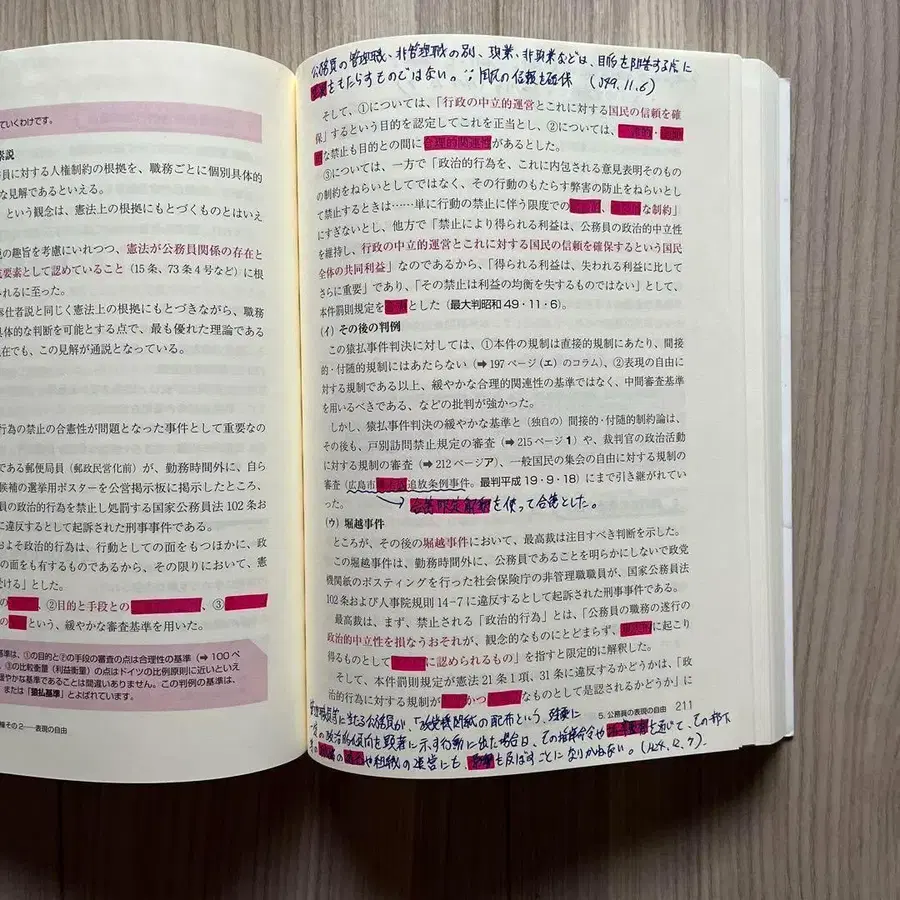 ていくわけです。
素説
員に対する人権制約の根拠を、職務ごとに個別具体的
な見解であるといえる。
という観念は、憲法上の根拠にもとづくものとはいえ
説の趣旨を考慮にいれつつ、憲法が公務員関係の存在と
要素として認めていること（15条、73条4号など）に根
れるに至った。
奉仕者説と同じく憲法上の根拠にもとづきながら、職務
具体的な判断を可能とする点で、最も優れた理論である
在でも、この見解が通説となっている。
行為の禁止の合憲性が問題となった事件として重要なの
である郵便局員（郵政民営化前）が、勤務時間外に、自ら
候補の選挙用ポスターを公営掲示板に掲示したところ、
員の政治的行為を禁止し処罰する国家公務員法102条お
に違反するとして起訴された刑事事件である。
およそ政治的行為は、行動としての面をもつほかに、政
の面をも有するものであるから、その限りにおいて、憲
受ける」とした。
の、②目的と手段との、③
のという、緩やかな審査基準を用いた。
基準は、①の目的と②の手段の審査の点は合理性の基準（➡100ペ
、③の比較衡量（利益衡量）の点はドイツの比例原則に近いといえ
緩やかな基準であることは間違いありません。この判例の基準は、
または「猿払基準」とよばれています。
権その2──表現の自由
公務員の管理職、非管理職の別、現業、非現業などは、目的を阻害する点に
をもたらすものではない。∵国民の信頼を確保（S49.11.6）
そして、①については、「行政の中立的運営とこれに対する国民の信頼を確
保」するという目的を認定してこれを正当とし、②については、
な禁止も目的との間に合理的関連性があるとした。
③については、一方で「政治的行為を、これに内包される意見表明そのもの
の制約をねらいとしてではなく、その行動のもたらす弊害の防止をねらいとし
て禁止するときは……単に行動の禁止に伴う限度での、な制約」
にすぎないとし、他方で「禁止により得られる利益は、公務員の政治的中立性
を維持し、行政の中立的運営とこれに対する国民の信頼を確保するという国民
全体の共同利益」なのであるから、「得られる利益は、失われる利益に比して
さらに重要」であり、「その禁止は利益の均衡を失するものではない」として、
本件罰則規定をとした（最大判昭和49・11・6）。
（イ）その後の判例
この猿払事件判決に対しては、①本件の規制は直接的規制にあたり、間接
的・付随的規制にはあたらない（➡197ページ（エ）のコラム）、②表現の自由に
対する規制である以上、緩やかな合理的関連性の基準ではなく、中間審査基準
を用いるべきである、などの批判が強かった。
しかし、猿払事件判決の緩やかな基準と（独自の）間接的・付随的制約論は、
その後も、戸別訪問禁止規定の審査（➡215ページ1）や、裁判官の政治活動
に対する規制の審査（➡212ページア）、一般国民の集会の自由に対する規制の
審査（広島市追放条例事件。最判平成19・9・18）にまで引き継がれてい
った。
合憲限定解釈を使って合憲とした。
（ウ）堀越事件
ところが、その後の堀越事件において、最高裁は注目すべき判断を示した。
この堀越事件は、勤務時間外に、公務員であることを明らかにしないで政党
機関紙のポスティングを行った社会保険庁の非管理職職員が、国家公務員法
102条および人事院規則14-7に違反するとして起訴された刑事事件である。
最高裁は、まず、禁止される「政治的行為」とは、「公務員の職務の遂行の
政治的中立性を損なうおそれが、観念的なものにとどまらず、に起こり
得るものとしてに認められるもの」を指すと限定的に解釈した。
そして、本件罰則規定が憲法21条1項、31条に違反するかどうかは、「政
治的行為に対する規制がかつなものとして是認されるかどうか」に
5. 公務員の表現の自由 211
管理職員等に当たる公務員が、「政党機関紙の配布という、政党に
一定の政治的傾向を顕著に示す行動に出た場合は、その指揮命令やを通じて、その部下
やや組織の運営にも、を及ぼすことになりかねない。（H24.12.7）